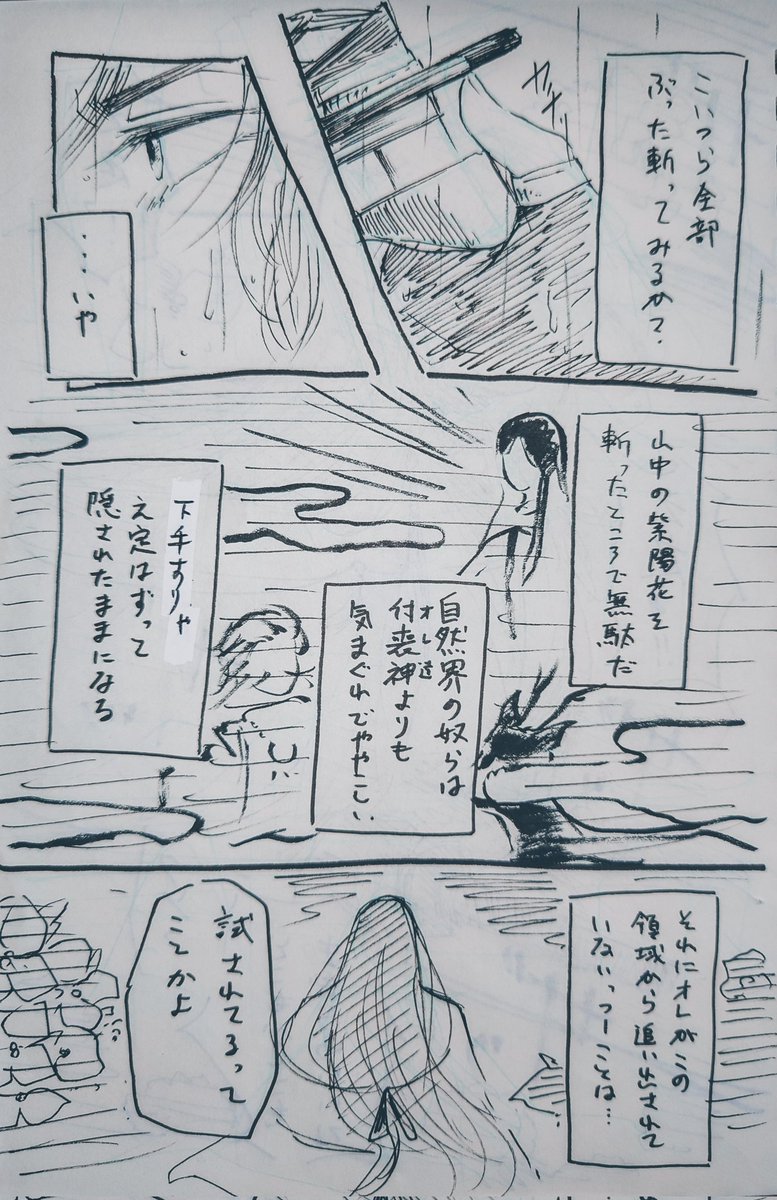 こいつら全部
ぶった斬ってみるか?
ヤッ
…いや
山中の紫陽花を
斬ったところで無駄だ
自然界の奴らは
オレ達
付喪神よりも
気まぐれでややこしい
下手すりゃ
え定はずって
隠されたままになる
それにオレがこの
領域から追い出されて
いないっつーことは…
試されてるって
ことかよ